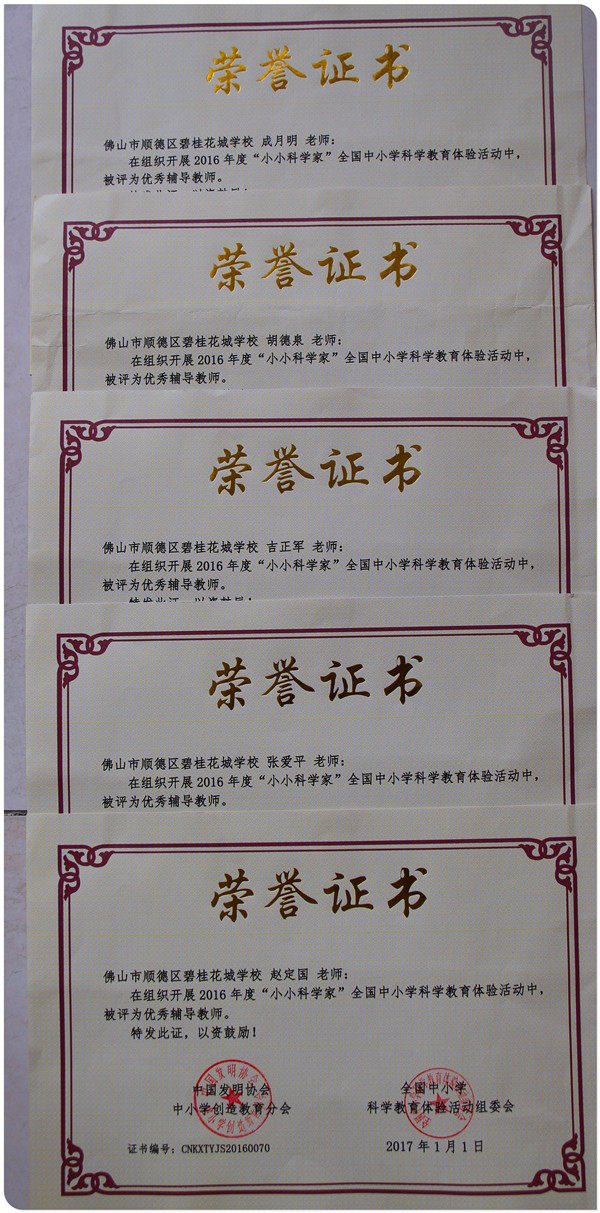 荣誉证书
佛山市顺德区碧桂花城学校 成月明 老师：
在组织开展2016年度“小小科学家”全国中小学科学教育体验活动中，
被评为优秀辅导教师。
荣誉证书
佛山市顺德区碧桂花城学校 胡德泉 老师：
在组织开展2016年度“小小科学家”全国中小学科学教育体验活动中，
被评为优秀辅导教师。
荣誉证书
佛山市顺德区碧桂花城学校 吉正军 老师：
在组织开展2016年度“小小科学家”全国中小学科学教育体验活动中，
被评为优秀辅导教师。
特发此证，以资鼓励！
荣誉证书
佛山市顺德区碧桂花城学校 张爱平 老师：
在组织开展2016年度“小小科学家”全国中小学科学教育体验活动中，
被评为优秀辅导教师。
荣誉证书
佛山市顺德区碧桂花城学校 赵定国 老师：
在组织开展2016年度“小小科学家”全国中小学科学教育体验活动中，
被评为优秀辅导教师。
特发此证，以资鼓励！
中国发明协会
中小学创造教育分会
全国中小学
科学教育体验活动组委会
证书编号：CNKXTYJS20160070
2017年1月1日